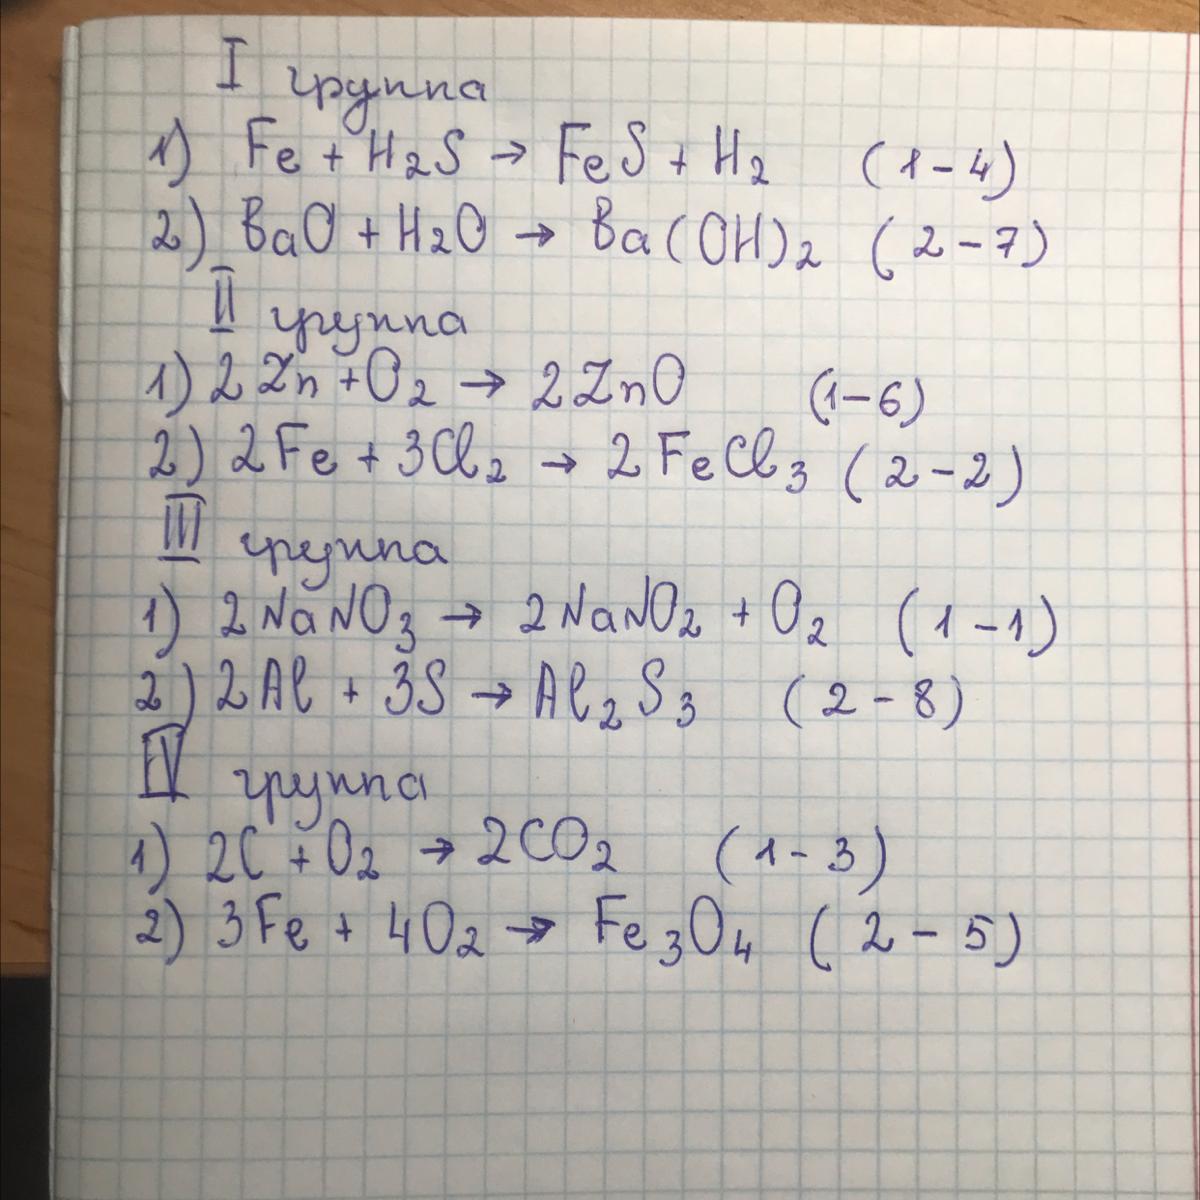 I группа
1) Fe + H2S → FeS + H2 (1-4)
2) BaO + H2O → Ba(OH)2 (2-7)
II группа
1) 2Zn + O2 → 2ZnO (1-6)
2) 2Fe + 3Cl2 → 2FeCl3 (2-2)
III группа
1) 2NaNO3 → 2NaNO2 + O2 (1-1)
2) 2Al + 3S → Al2S3 (2-8)
IV группа
1) 2C + O2 → 2CO2 (1-3)
2) 3Fe + 4O2 → Fe3O4 (2-5)